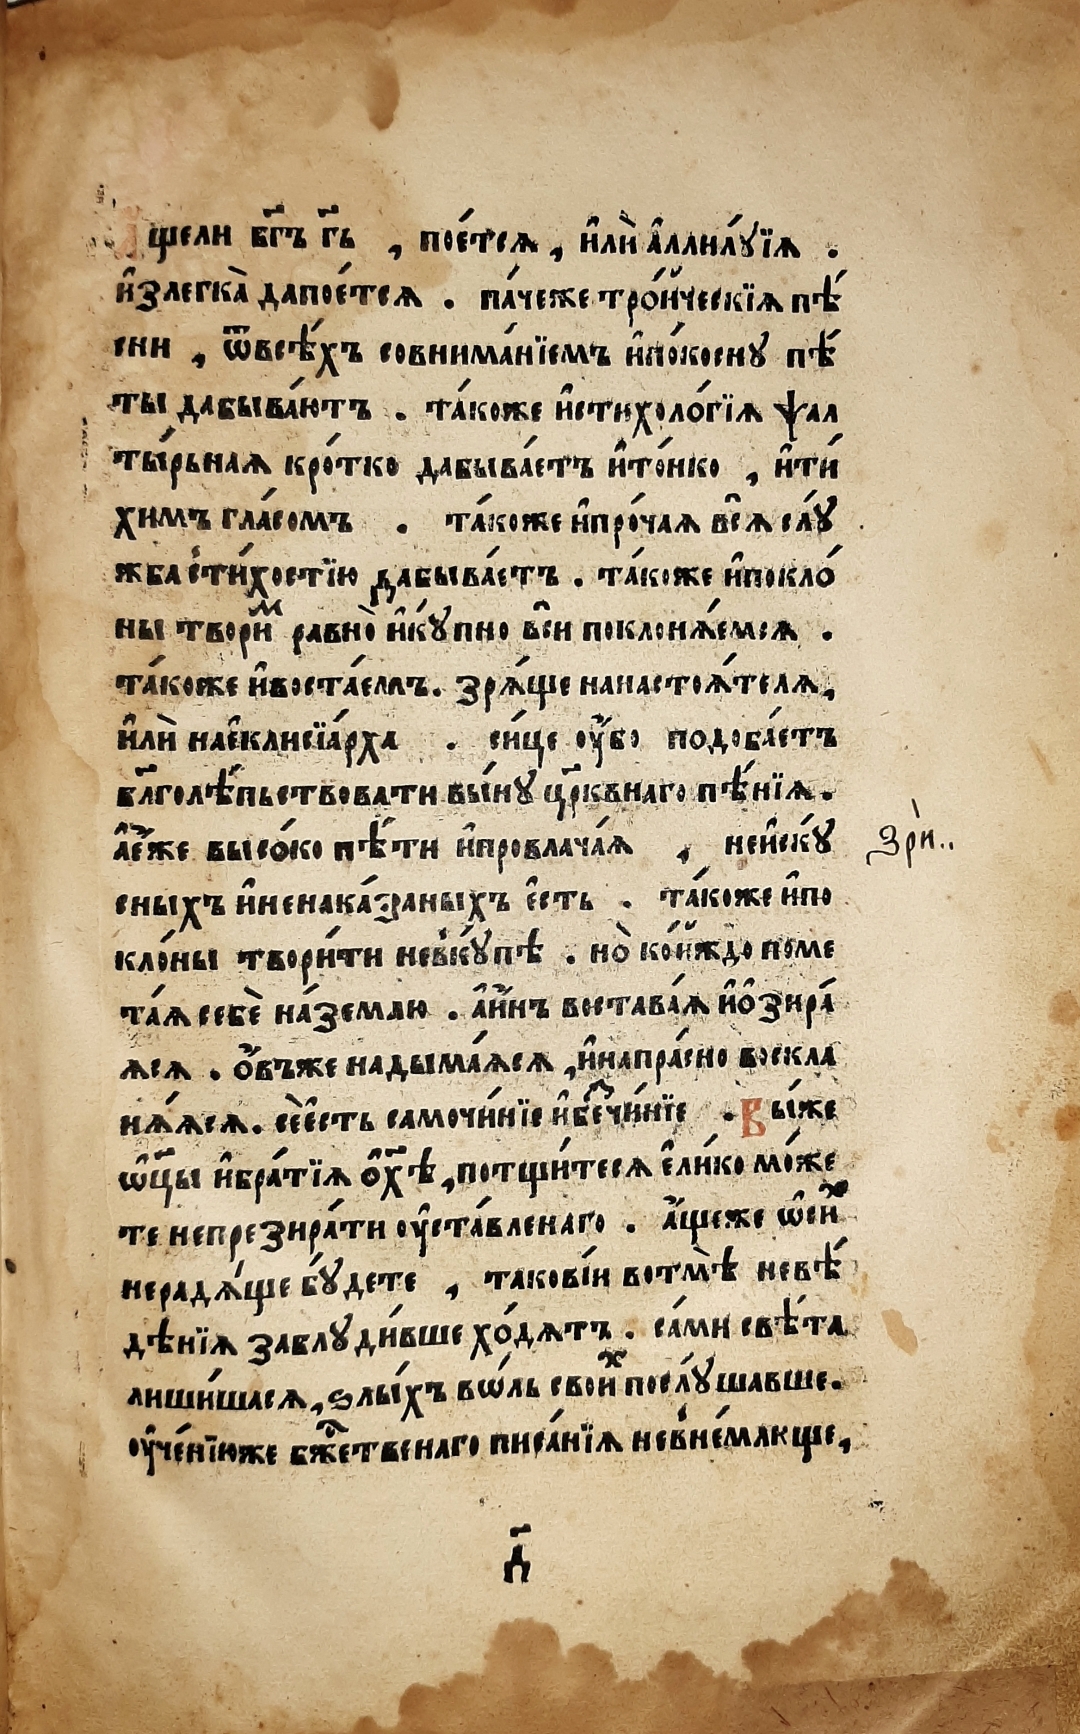 А҆щели бг҃ъ гд҃ь , пое́тсѧ , и҆лѝ а҆ллилꙋ́їѧ .
и҆злегка̀ дапое́тсѧ . па́чеже тро́йческїѧ пѣ́
сни , ѿвсѣ́хъ совнима́нїемъ и҆по́косну пѣ́
ты дабыва́ютъ . та́коже и҆стихоло́гїѧ ѱал
ты́рьнаѧ кро́тко дабыва́етъ и҆то́нко , и҆ти́
химъ гла́сомъ . та́коже и҆про́чаѧ всѧ̑ слꙋ́
жба с̾ти́хостїю дабыва́етъ . та́коже и҆покло́
ны твориⷨ равно̀ и҆кꙋ́пно вси̑ поклонѧ́емсѧ .
та́коже и҆воста́емъ . зрѧ́ще нанастоѧ́телѧ ,
и҆лѝ нае҆клисїа́рха . си́це ᲂу҆́бо подоба́етъ
бл҃голѣ́пьствовати вы́нꙋ цр҃кънаго пѣ́нїѧ .
а҆є҆́же высо́ко пѣ́ти и҆провлача́ѧ , неи҆скꙋ́
сныхъ и҆ненака́заныхъ є҆сть . та́коже и҆по
кло́ны твори́ти нев̾кꙋ́пѣ . но̀ ко́йждо поме
та́ѧ себѐ на́землю . а҆и҆́нъ востава́ѧ и҆ѻ҆зира́
ѧсѧ . ѻ҆́въже надыма́ѧсѧ , и҆напра́сно воскла
нѧ́ѧсѧ . сѐе҆сть самочи́нїе и҆беⷥчи́нїе . Вы́же
ѻ҆ц҃ы и҆бра́тїѧ ѻ҆х҃ѣ , потщи́тесѧ е҆ли́ко мо́же
те непрезира́ти ᲂу҆ста́вленаго . а҆́щеже ѡ҆сиⷯ
нерадѧ́ще бꙋ́дете , такові́и вотмѣ̀ невѣ́
дѣнїѧ заблꙋди́вше хо́дѧтъ . са́ми свѣ́та
лиши́шасѧ , ѕлы́хъ во́ль своиⷯ послꙋ́шавше .
ᲂу҆че́нїюже бж҃е́ственаго писа́нїѧ нев̾не́млюще ,
зрѝ ..
д҃